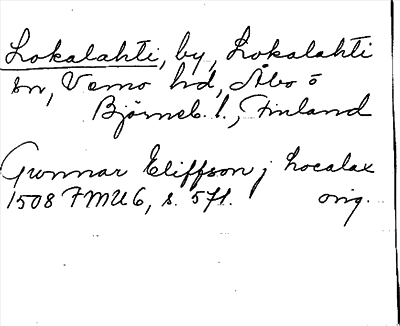 Lokalahti, by, Lokalahti
sn, Vemo hd, Åbo ö
Björneb. l., Finland
Gunnar Eliffson j Localax
1508 FMU 6, s. 571. orig.